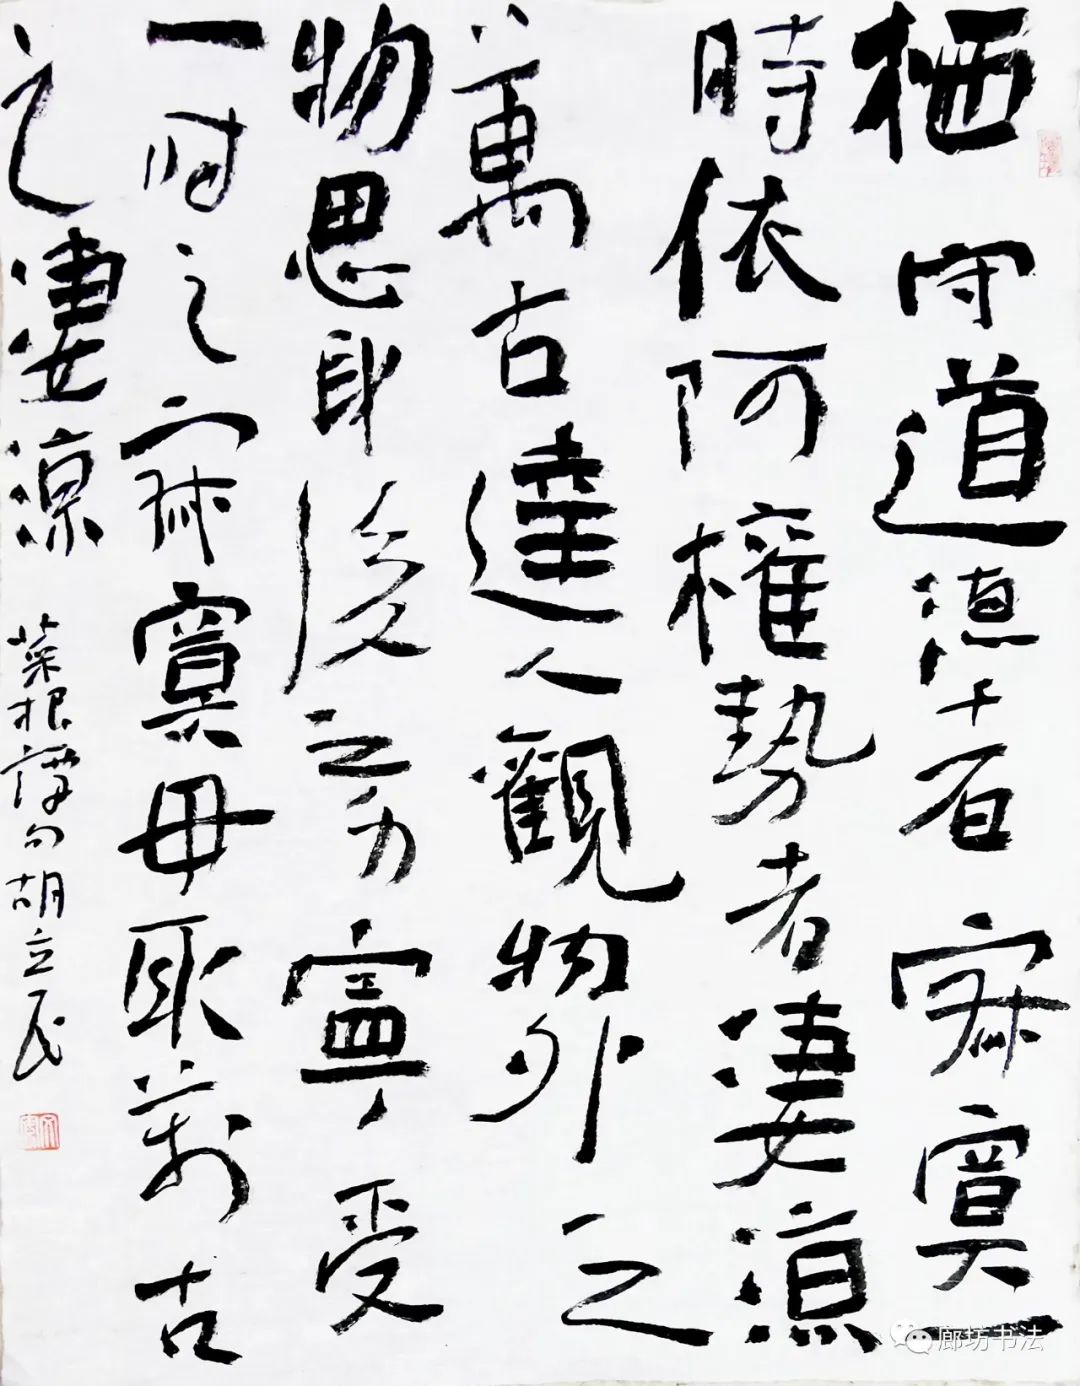 栖守道德者寂寞一
時依阿權勢者淒涼
萬古達人觀物外之
物思身後之身寧受
一时之寂寞毋取萬古
之淒涼 菜根譚句胡立民
廊坊书法